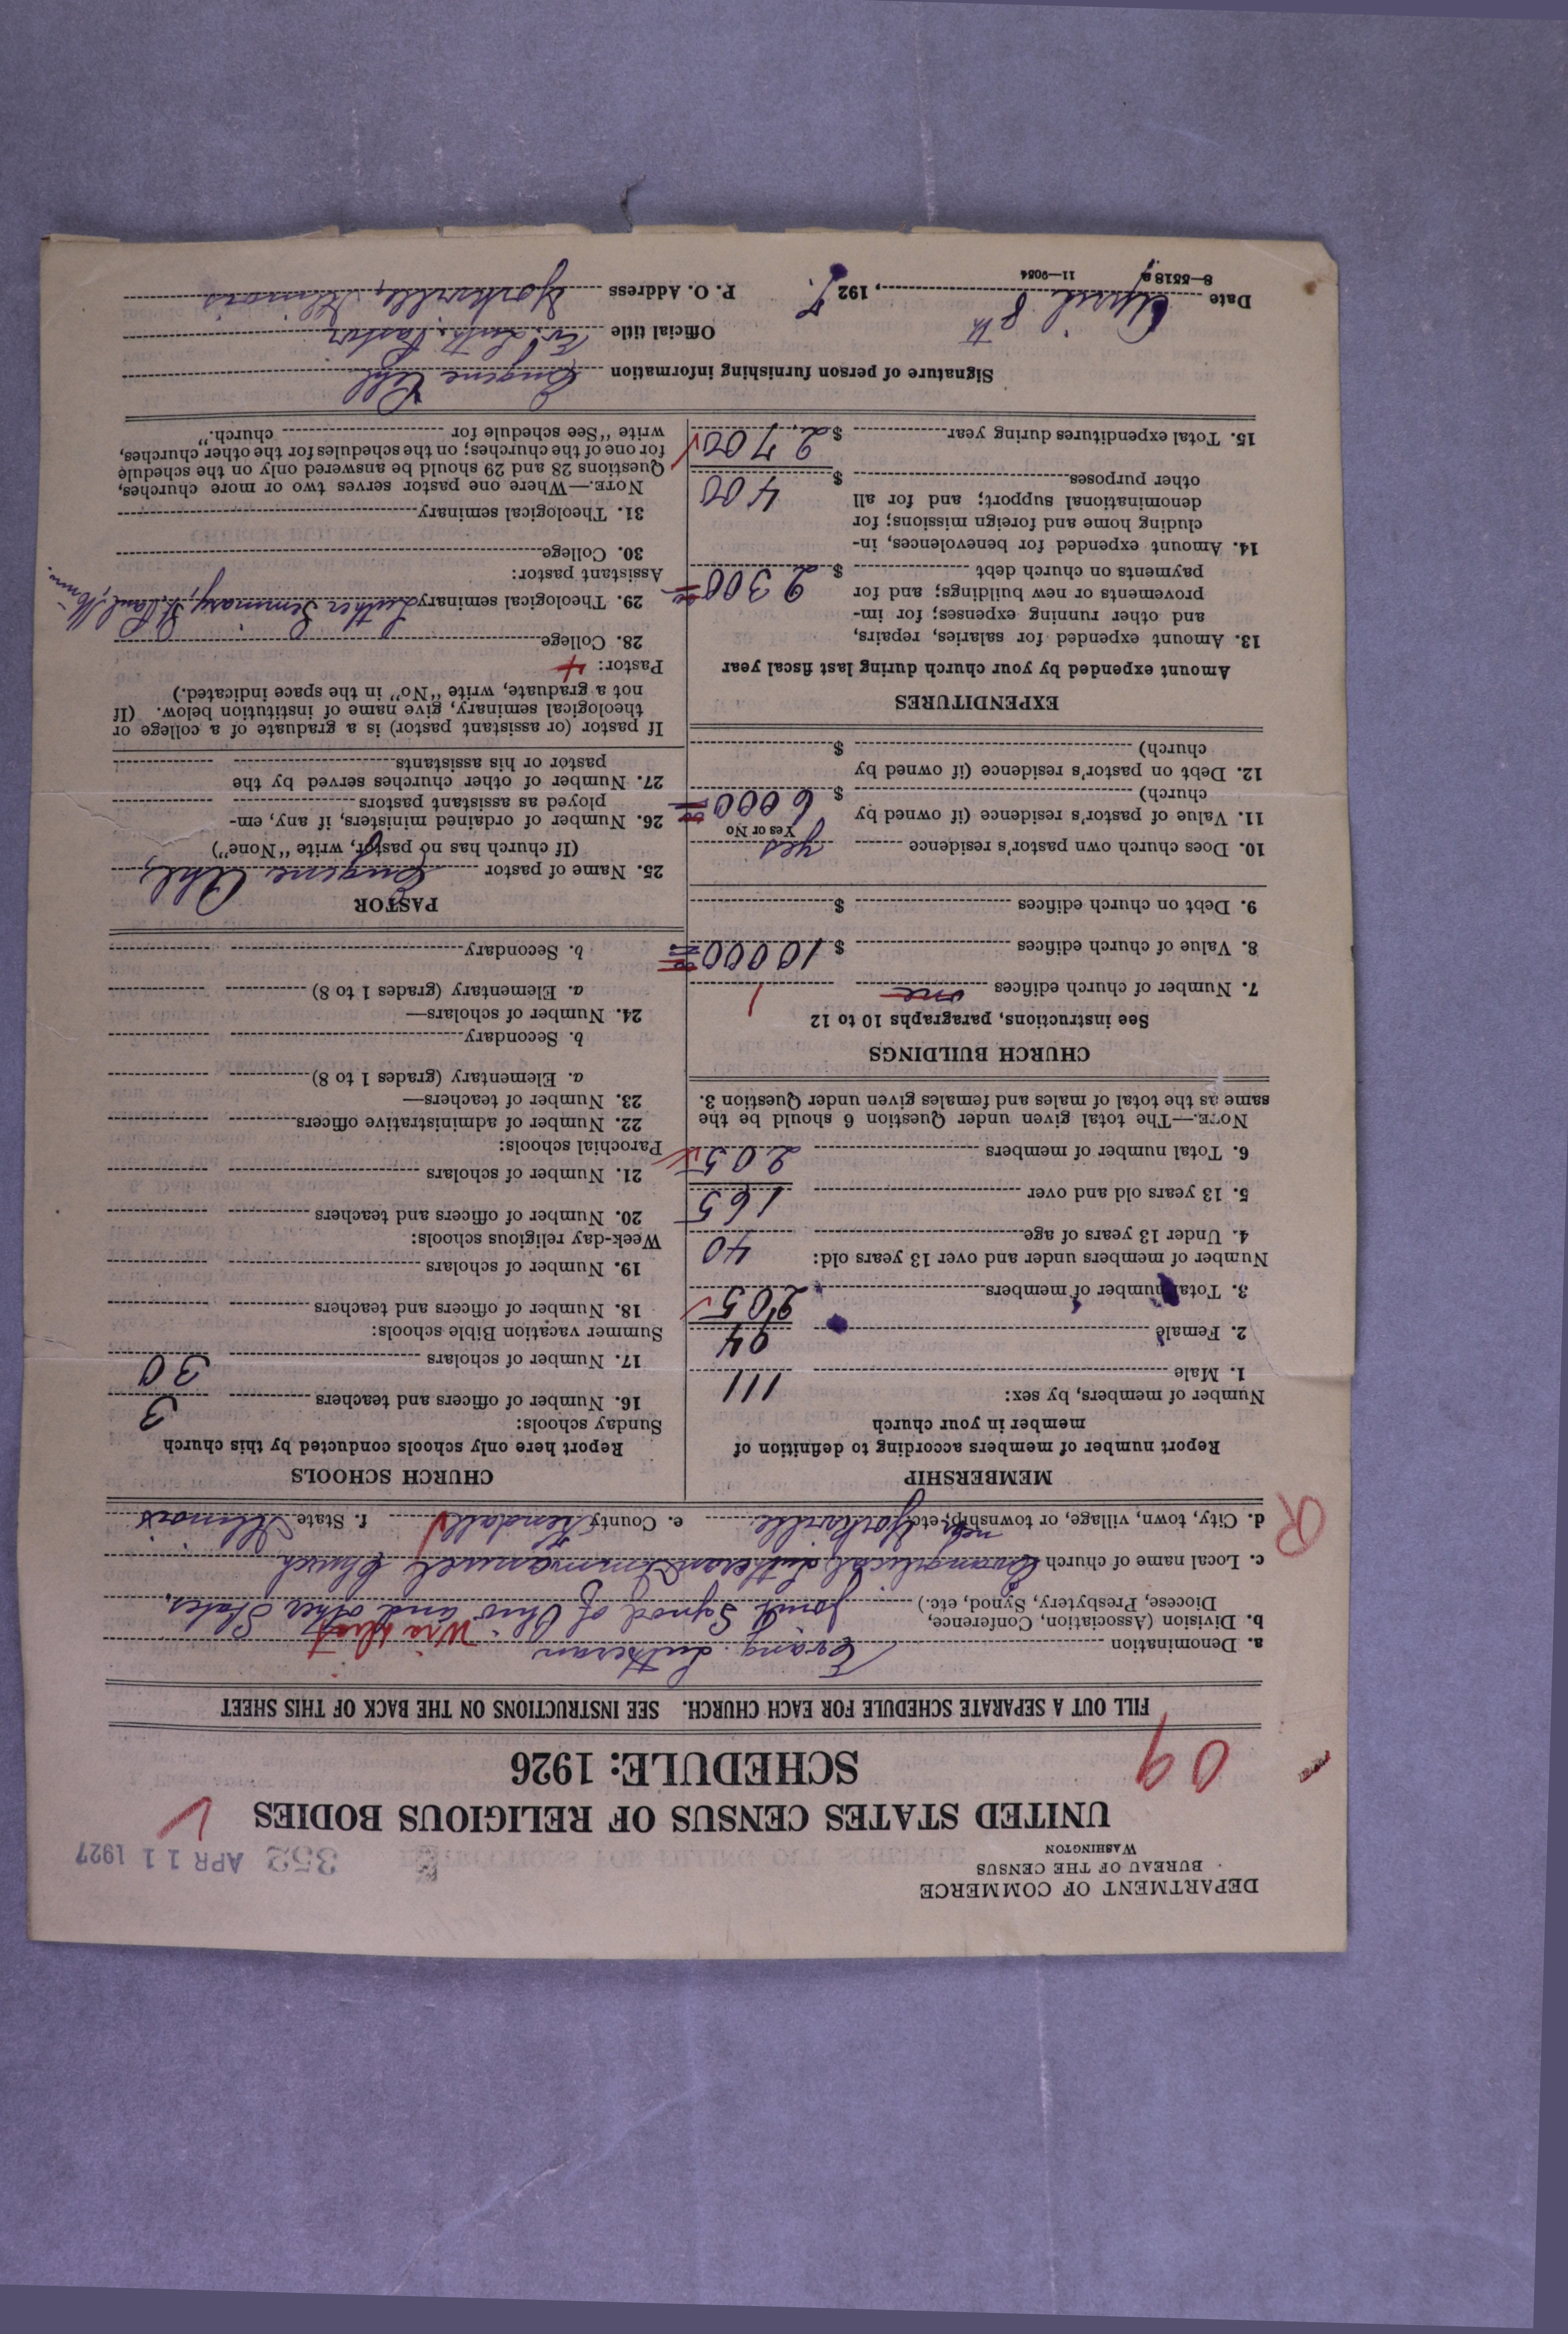 DEPARTMENT OF COMMERCE
BUREAU OF THE CENSUS
WASHINGTON
352 APR 11 1927
UNITED STATES CENSUS OF RELIGIOUS BODIES
SCHEDULE: 1926
09
FILL OUT A SEPARATE SCHEDULE FOR EACH CHURCH. SEE INSTRUCTIONS ON THE BACK OF THIS SHEET
a. Denomination Evang. Lutheran
b. Division (Association, Conference, Diocese, Presbytery, Synod, etc.) Joint Synod of Ohio and other States.
c. Local name of church Evangelical Lutheran Immanuel Church
d. City, town, village, or township, etc. near Yorkville e. County Kendall f. State Illinois
R
MEMBERSHIP
Report number of members according to definition of
member in your church
Number of members, by sex:
1. Male 111
2. Female 94
3. Total number of members 205
Number of members under and over 13 years old:
4. Under 13 years of age 40
5. 13 years old and over 165
6. Total number of members 205
NOTE.—The total given under Question 6 should be the
same as the total of males and females given under Question 3.
CHURCH BUILDINGS
See instructions, paragraphs 10 to 12
7. Number of church edifices one 1
8. Value of church edifices $ 10000
9. Debt on church edifices $
10. Does church own pastor's residence yes
Yes or No
11. Value of pastor's residence (if owned by
church) $ 6000
12. Debt on pastor's residence (if owned by
church) $
EXPENDITURES
Amount expended by your church during last fiscal year
13. Amount expended for salaries, repairs,
and other running expenses; for im-
provements or new buildings; and for
payments on church debt $ 2300
14. Amount expended for benevolences, in-
cluding home and foreign missions; for
denominational support; and for all
other purposes $ 400
15. Total expenditures during year $ 2,700
CHURCH SCHOOLS
Report here only schools conducted by this church
Sunday schools:
16. Number of officers and teachers 3
17. Number of scholars 30
Summer vacation Bible schools:
18. Number of officers and teachers
19. Number of scholars
Week-day religious schools:
20. Number of officers and teachers
21. Number of scholars
Parochial schools:
22. Number of administrative officers
23. Number of teachers—
a. Elementary (grades 1 to 8)
b. Secondary
24. Number of scholars—
a. Elementary (grades 1 to 8)
b. Secondary
PASTOR
25. Name of pastor Eugene Ahl,
(If church has no pastor, write "None")
26. Number of ordained ministers, if any, em-
ployed as assistant pastors
27. Number of other churches served by the
pastor or his assistants
If pastor (or assistant pastor) is a graduate of a college or
theological seminary, give name of institution below. (If
not a graduate, write "No" in the space indicated.)
Pastor: 4
28. College
29. Theological seminary Luther Seminary, St. Paul, Minn.
Assistant pastor:
30. College
31. Theological seminary
NOTE.—Where one pastor serves two or more churches,
Questions 28 and 29 should be answered only on the schedule
for one of the churches; on the schedules for the other churches,
write "See schedule for church."
Signature of person furnishing information Eugene Ahl
Official title Ev. Luth. Pastor
Date April 8th, 1927. P. O. Address Yorkville, Illinois
8—5518 a 11—9054